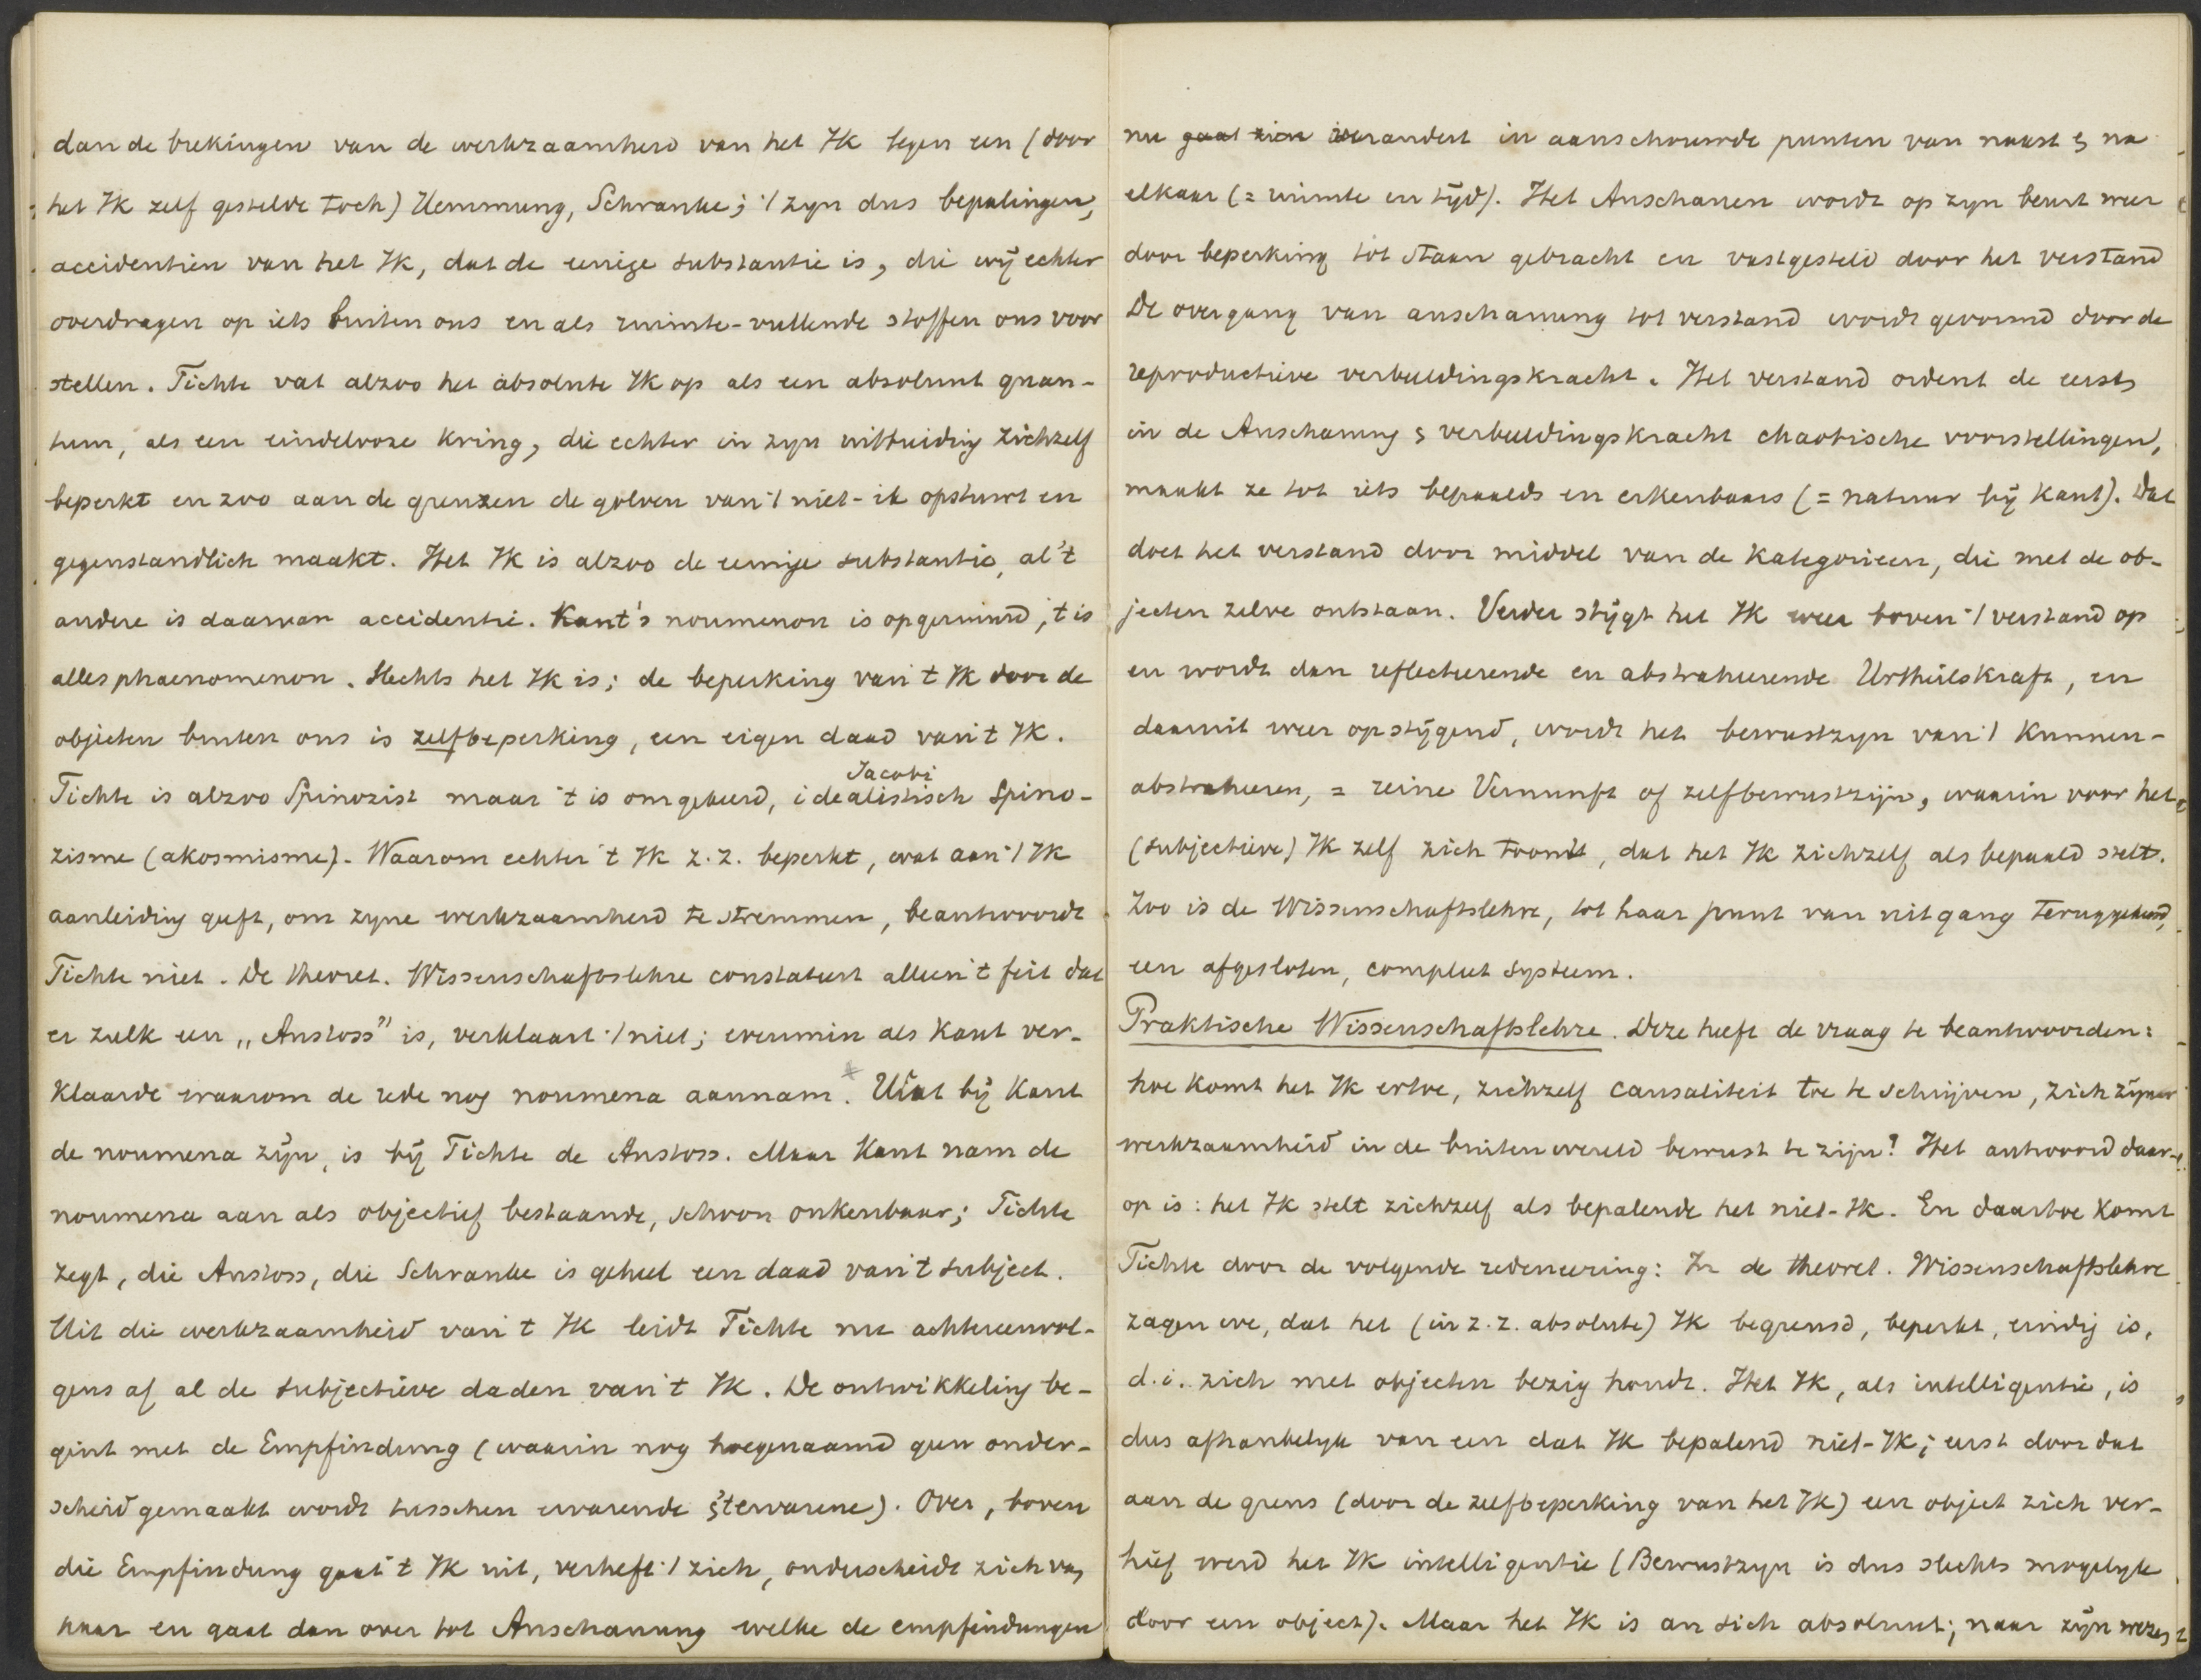 dan de brekingen van de werkzaamheid van het Ik tegen een (door
het Ik zelf gestelde toch) Hemmung, Schranke; 't zyn dus bepalingen,
accidentien van het Ik, dat de eenige substantie is, die wij echter
overdragen op iets buiten ons en als ruimte-vullende stoffen ons voor
stellen. Fichte vat alzoo het absolute Ik op als een absoluut quan-
tum, als een eindelooze kring, die echter in zyn uitbreiding zichzelf
beperkt en zoo aan de grenzen de golven van 't niet-ik opstuwt en
gegenstandlich maakt. Het Ik is alzoo de eenige substantie, al 't
andere is daarvan accidentie. Kant's noumenon is opgeruimd, 't is
alles phaenomenon. Slechts het Ik is; de beperking van 't Ik door de
objecten buiten ons is zelfbeperking, een eigen daad van 't Ik.
Jacobi
Fichte is alzoo Spinozist maar 't is omgekeerd, idealistisch Spino-
zisme (akosmisme). Waarom echter 't Ik z.z. beperkt, wat aan 't Ik
aanleiding geeft, om zyne werkzaamheid te stremmen, beantwoordt
Fichte niet. De theoret. Wissenschaftslehre constateert alleen 't feit dat
er zulk een „Anstoss" is, verklaart 't niet; evenmin als Kant ver-
klaarde waarom de rede nog noumena aannam. Wat bij Kant
de noumena zijn, is bij Fichte de Anstoss. Maar Kant nam de
noumena aan als objectief bestaande, schoon onkenbaar; Fichte
zegt, die Anstoss, die Schranke is geheel een daad van 't subject.
Uit die werkzaamheid van 't Ik leidt Fichte nu achtereenvol-
gens af al de subjectieve daden van 't Ik. De ontwikkeling be-
gint met de Empfindung (waarin nog hoegenaamd geen onder-
scheid gemaakt wordt tusschen ervarende & 't ervarene). Over, boven
die Empfindung gaat 't Ik uit, verheft 't zich, onderscheidt zich van
haar en gaat dan over tot Anschauung welke de empfindungen
nu gaat zien verandert in aanschouwde punten van naast & na
elkaar (= ruimte en tijd). Het Anschauen wordt op zyn beurt weer
door beperking tot staan gebracht en vastgesteld door het verstand
De overgang van anschauung tot verstand wordt gevormd door de
reproductieve verbeeldingskracht. Het verstand ordent de eerst,
in de Anschauung & verbeeldingskracht chaotische voorstellingen,
maakt ze tot iets bepaalds en erkenbaars (= natuur bij Kant). Dat
doet het verstand door middel van de kategorieen, die met de ob-
jecten zelve ontstaan. Verder stijgt het Ik weer boven 't verstand op
en wordt dan reflecteerende en abstraheerende Urtheilskraft, en
daaruit weer opstijgend, wordt het bewustzyn van 't kunnen-
abstraheeren, = reine Vernunft of zelfbewustzijn, waarin voor het
(subjectieve) Ik zelf zich toont, dat het Ik zichzelf als bepaald stelt.
Zoo is de Wissenschaftslehre, tot haar punt van uitgang teruggekeerd,
een afgesloten, compleet systeem.
Praktische Wissenschaftslehre. Deze heeft de vraag te beantwoorden:
hoe komt het Ik ertoe, zichzelf causaliteit toe te schrijven, zich zijner
werkzaamheid in de buitenwereld bewust te zijn? Het antwoord daar-
op is: het Ik stelt zichzelf als bepalende het niet-Ik. En daartoe komt
Fichte door de volgende redeneering: In de theoret. Wissenschaftslehre
zagen we, dat het (in z.z. absolute) Ik begrensd, beperkt, eindig is,
d.i. zich met objecten bezig houdt. Het Ik, als intelligentie, is
dus afhankelyk van een dat Ik bepalend niet-Ik; eerst door dat
aan de grens (door de zelfbeperking van het Ik) een object zich ver-
hief werd het Ik intelligentie (Bewustzyn is dus slechts mogelyk
door een object). Maar het Ik is an sich absoluut; naar zijn wezen